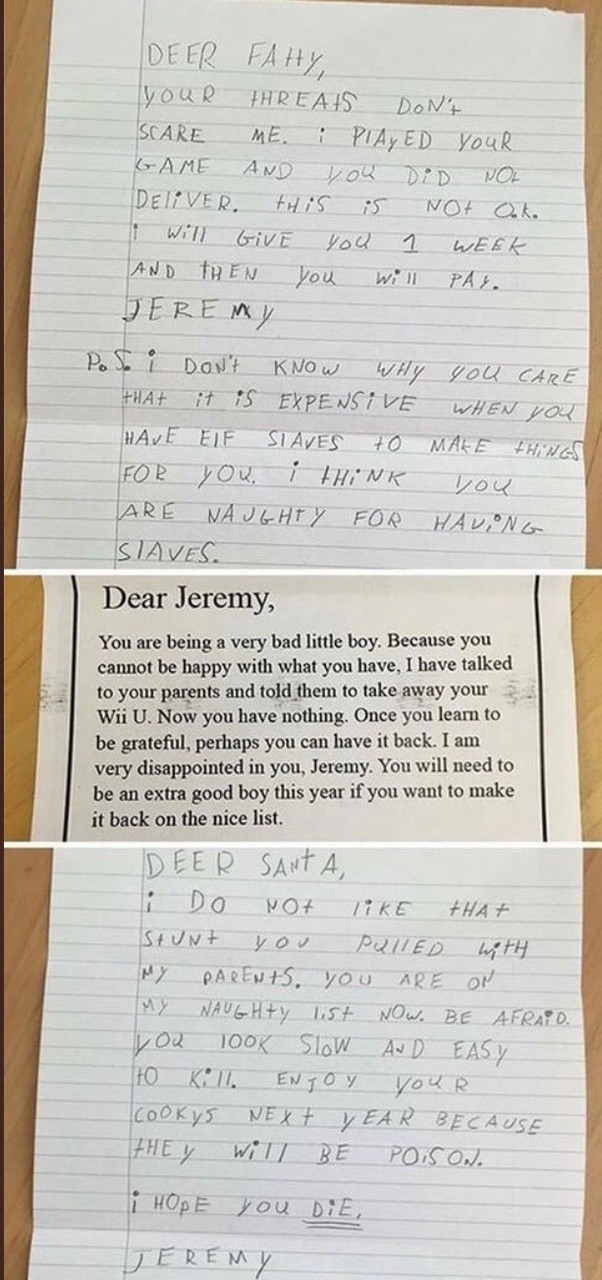 DEER FATTY,
YOUR THREATS DON't
SCARE ME. i PlAyED YOUR
GAME AND YOU DiD NOt
DEliVER. tHiS iS NOt O.k.
i Will GiVE YOU 1 WEEK
AND tHEN YOU Will PAY.
JEREMY
P.S. i DON't KNOW WHY YOU CARE
tHAt it iS EXPENSiVE WHEN YOU
HAVE ElF SlAVES tO MAKE tHiNGS
FOR YOU. i tHiNK YOU
ARE NAUGHTY FOR HAViNG
SlAVES.
Dear Jeremy,
You are being a very bad little boy. Because you
cannot be happy with what you have, I have talked
to your parents and told them to take away your
Wii U. Now you have nothing. Once you learn to
be grateful, perhaps you can have it back. I am
very disappointed in you, Jeremy. You will need to
be an extra good boy this year if you want to make
it back on the nice list.
DEER SANtA,
i DO NOt liKE tHAt
StUNt YOU PUllED WitH
MY PARENtS. YOU ARE ON
MY NAUGHtY liSt NOW. BE AFRAiD.
YOU lOOK SlOW AND EASY
tO Kill. ENJOY YOUR
COOKYS NEXt YEAR BECAUSE
tHEY Will BE POiSON.
i HOPE YOU DiE.
JEREMY